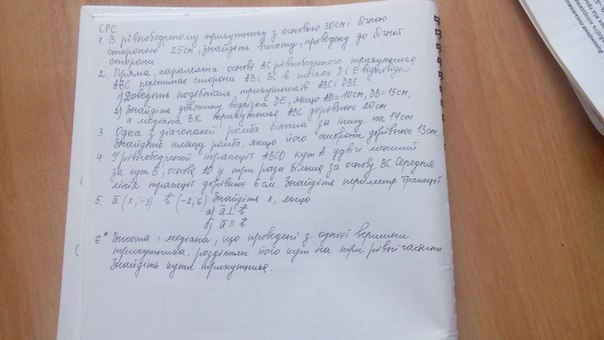 СРС
1. В рівнобедреному трикутнику з основою 30см і бічною
стороною 25см, знайдіть висоту, проведену до бічної
сторони.
2. Пряма, паралельна основі АС рівнобедреного трикутника
АВС перетинає сторони АВ і ВС в точках D і E відповідно
1) Доведіть подібність трикутників АВС і DBE
2) Знайдіть довжину відрізка DE, якщо AD=10см, DB=15см,
а медіана ВК трикутника АВС дорівнює 20см
3. Одна з діагоналей ромба більша за іншу на 14см
Знайдіть площу ромба, якщо його сторона дорівнює 13см
4. У рівнобедреній трапеції ABCD кут А удвічі менший
за кут В, основа AD у три рази більша за основу ВС. Середня
лінія трапеції дорівнює 6см. Знайдіть периметр трапеції
5. a (x; -3) b (-2; 6) Знайдіть х, якщо
а) a ⊥ b
б) a || b
6* Висота і медіана, що проведені з однієї вершини
трикутника, розділили його кут на три рівні частини.
Знайдіть кути трикутника.